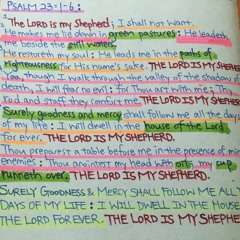 PSALM 23:1-6:
"The LORD is my Shepherd; I shall not want.
He makes me lie down in green pastures: He leadeth
me beside the still waters.
He restoreth my soul: He leads me in the paths of
righteousness for His name's sake. THE LORD IS MY SHEPHE
Yea, though I walk through the valley of the shadow of
death, I will fear no evil: for Thou art with me; Thy
rod and staff they comfort me. THE LORD IS MY SHEPHER
Surely goodness and mercy shall follow me all the days
of my life: I will dwell in the house of the Lord
for ever. THE LORD IS MY SHEPHERD.
Thou preparest a table before me in the presence of mine
enemies: Thou anointest my head with oil; my cup
runneth over. THE LORD IS MY SHEPHERD.
SURELY GOODNESS & MERCY SHALL FOLLOW ME ALL
DAYS OF MY LIFE: I WILL DWELL IN THE HOUSE
THE LORD FOR EVER. THE LORD IS MY SHEPHE